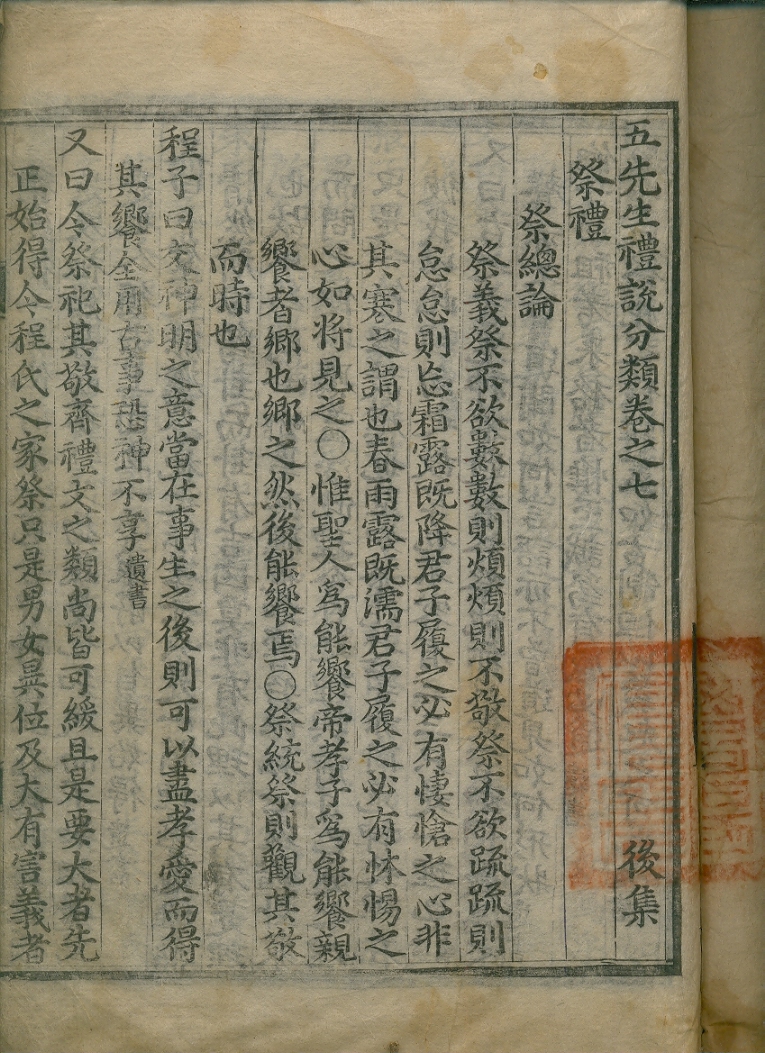 五先生禮說分類卷之七　後集
祭禮
祭總論
祭義祭不欲數數則煩煩則不敬祭不欲疏疏則
怠怠則忘霜露既降君子履之必有悽愴之心非
其寒之謂也春雨露既濡君子履之必有怵惕之
心如將見之○惟聖人爲能饗帝孝子爲能饗親
饗者鄉也鄉之然後能饗焉○祭統祭則觀其敬
而時也
程子曰交神明之意當在事生之後則可以盡孝愛而得
其饗全用古事恐神不享遺書
又曰今祭祀其敬齊禮文之類尚皆可緩且是要大者先
正始得今程氏之家祭只是男女異位及大有害義者